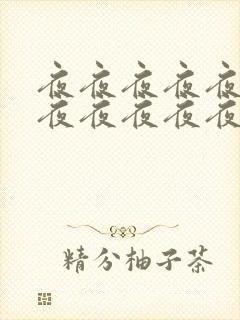 夜夜夜夜夜
夜夜夜夜夜
精分柚子茶